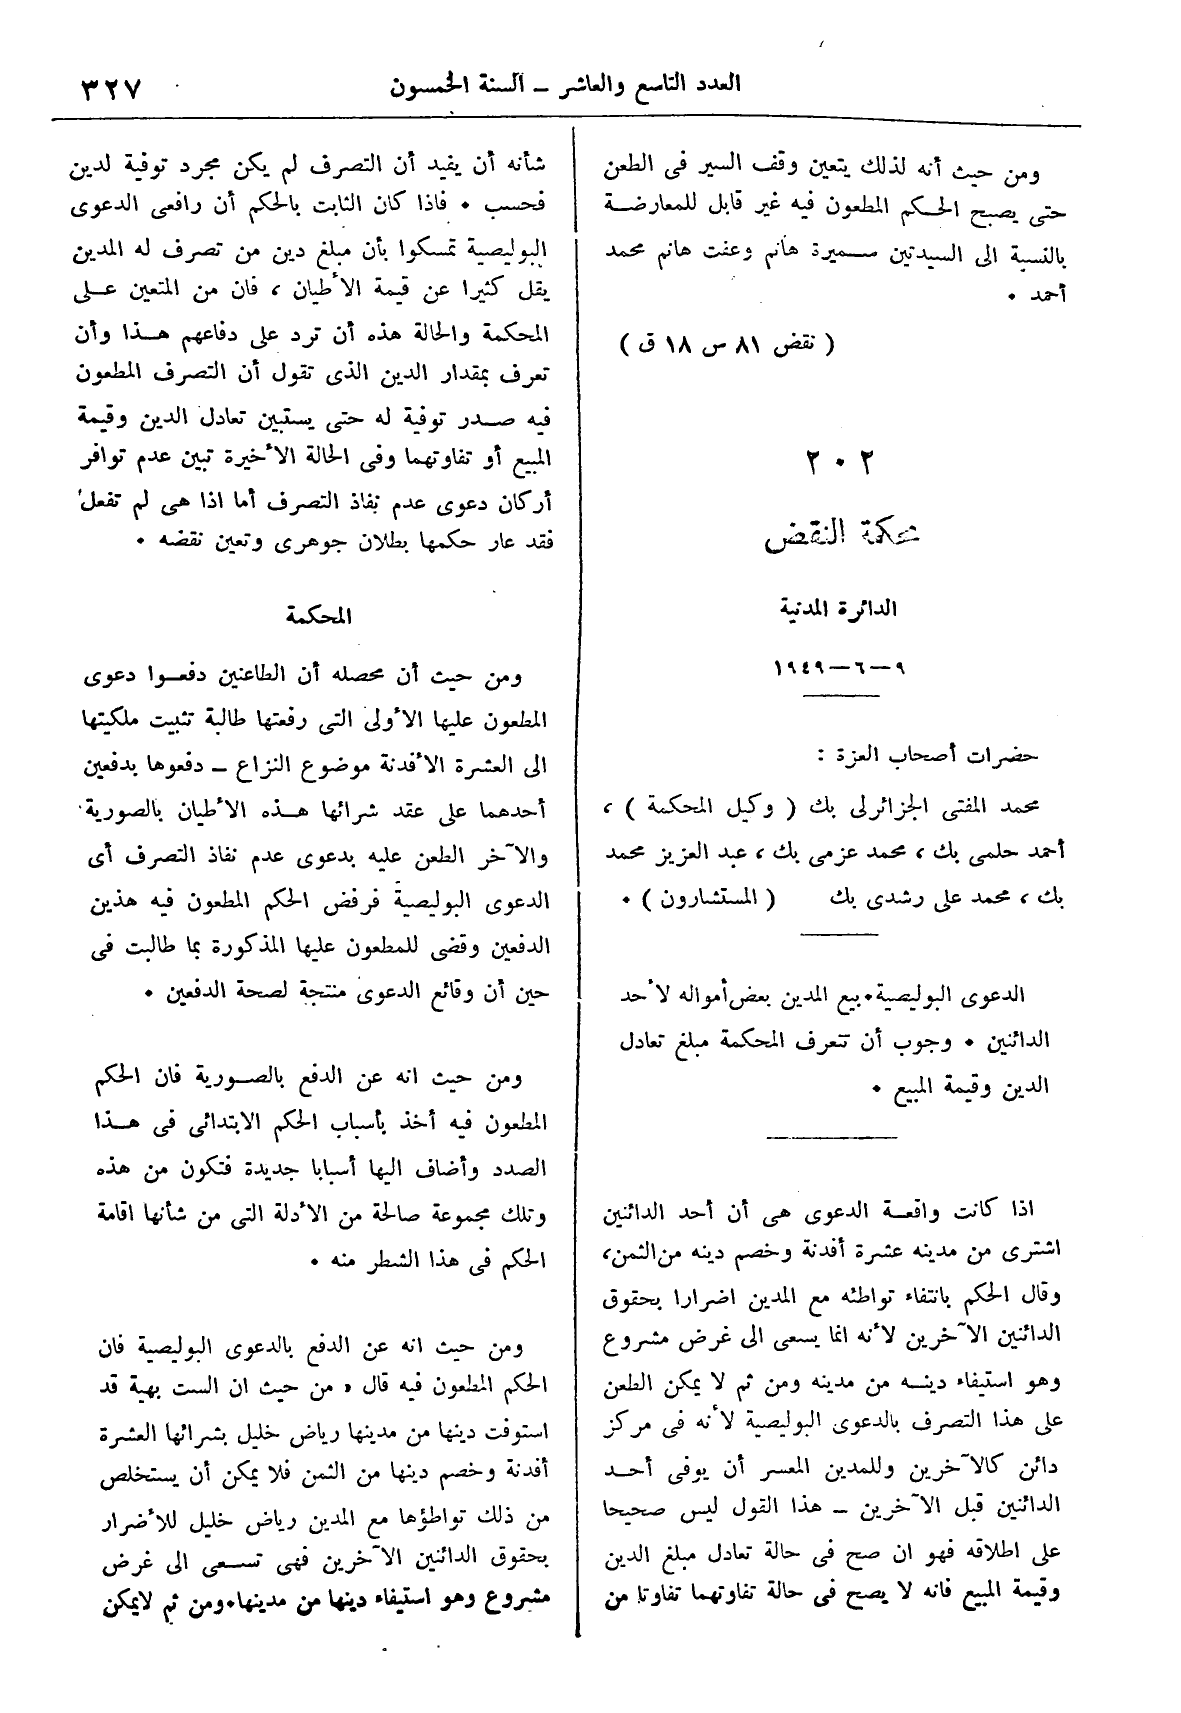 العدد التاسع والعاشر – السنة الخمسون
٣٢٧
ومن حيث أنه لذلك يتعين وقف السير فى الطعن
حتى يصبح الحكم المطعون فيه غير قابل للمعارضة
بالنسبة الى السيدتين سميرة هانم وعفت هانم محمد
أحمد ٠
( نقض ٨١ س ١٨ ق )
٢٠٢
محكمة النقض
الدائرة المدنية
٩ – ٦ – ١٩٤٩
حضرات أصحاب العزة :
محمد المفتى الجزائرلى بك ( وكيل المحكمة ) ،
أحمد حلمى بك ، محمد عزمى بك ، عبد العزيز محمد
بك ، محمد على رشدى بك ( المستشارون ) ٠
الدعوى البوليصية ٠ بيع المدين بعض أمواله لأحد
الدائنين ٠ وجوب أن تتعرف المحكمة مبلغ تعادل
الدين وقيمة المبيع ٠
اذا كانت واقعة الدعوى هى أن أحد الدائنين
اشترى من مدينه عشرة أفدنة وخصم دينه من الثمن،
وقال الحكم بانتفاء تواطئه مع المدين اضرارا بحقوق
الدائنين الآخرين لأنه انما يسعى الى غرض مشروع
وهو استيفاء دينه من مدينه ومن ثم لا يمكن الطعن
على هذا التصرف بالدعوى البوليصية لأنه فى مركز
دائن كالآخرين وللمدين المعسر أن يوفى أحد
الدائنين قبل الآخرين – هذا القول ليس صحيحا
على اطلاقه فهو ان صح فى حالة تعادل مبلغ الدين
وقيمة المبيع فانه لا يصح فى حالة تفاوتهما تفاوتا من
شأنه أن يفيد أن التصرف لم يكن مجرد توفية لدين
فحسب ٠ فاذا كان الثابت بالحكم أن رافعى الدعوى
البوليصية تمسكوا بأن مبلغ دين من تصرف له المدين
يقل كثيرا عن قيمة الأطيان ، فان من المتعين على
المحكمة والحالة هذه أن ترد على دفاعهم هذا وأن
تعرف بمقدار الدين الذى تقول أن التصرف المطعون
فيه صدر توفية له حتى يستبين تعادل الدين وقيمة
المبيع أو تفاوتهما وفى الحالة الأخيرة تبين عدم توافر
أركان دعوى عدم نفاذ التصرف أما اذا هى لم تفعل
فقد عار حكمها بطلان جوهرى وتعين نقضه ٠
المحكمة
ومن حيث أن محصله أن الطاعنين دفعوا دعوى
المطعون عليها الأولى التى رفعتها طالبة تثبيت ملكيتها
الى العشرة الأفدنة موضوع النزاع – دفعوها بدفعين
أحدهما على عقد شرائها هذه الأطيان بالصورية
والآخر الطعن عليه بدعوى عدم نفاذ التصرف أى
الدعوى البوليصية فرفض الحكم المطعون فيه هذين
الدفعين وقضى للمطعون عليها المذكورة بما طالبت فى
حين أن وقائع الدعوى منتجة لصحة الدفعين ٠
ومن حيث انه عن الدفع بالصورية فان الحكم
المطعون فيه أخذ بأسباب الحكم الابتدائى فى هذا
الصدد وأضاف اليها أسبابا جديدة فتكون من هذه
وتلك مجموعة صالحة من الأدلة التى من شأنها اقامة
الحكم فى هذا الشطر منه ٠
ومن حيث انه عن الدفع بالدعوى البوليصية فان
الحكم المطعون فيه قال « من حيث ان الست بهية قد
استوفت دينها من مدينها رياض خليل بشرائها العشرة
أفدنة وخصم دينها من الثمن فلا يمكن أن يستخلص
من ذلك تواطؤها مع المدين رياض خليل للأضرار
بحقوق الدائنين الآخرين فهى تسعى الى غرض
مشروع وهو استيفاء دينها من مدينها٠ومن ثم لايمكن